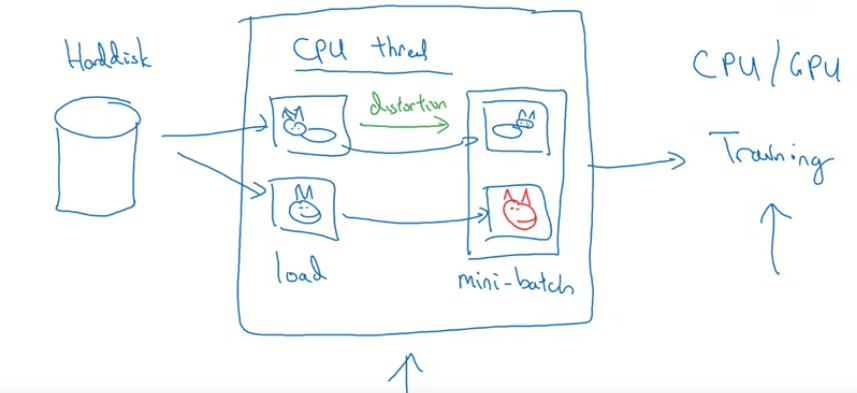 Harddisk
CPU thread
distortion
load
mini-batch
CPU/GPU
Training